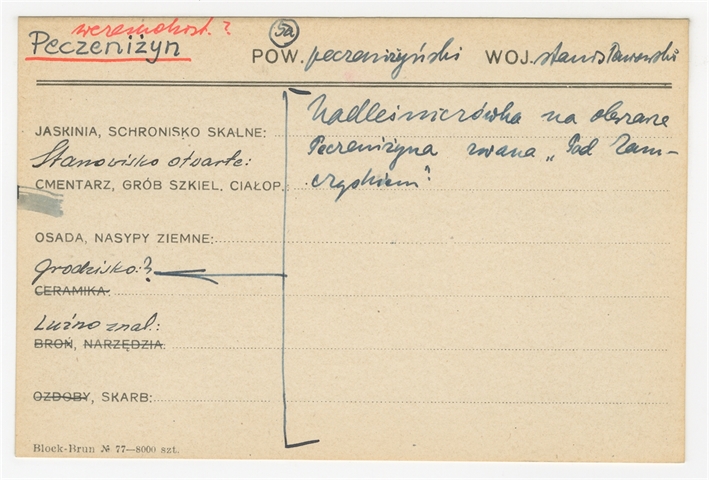 wczesnohist. ?
Peczeniżyn
5a
POW. peczeniżyński WOJ. stanisławowski
Nadleśniczówka na obszarze
JASKINIA, SCHRONISKO SKALNE:
Peczeniżyna zwana „Pod Zam-
Stanowisko otwarte:
czyskiem"
CMENTARZ, GRÓB SZKIEL. CIAŁOP.:
OSADA, NASYPY ZIEMNE:
Grodzisko:?
CERAMIKA:
Luźno znal.:
BROŃ, NARZĘDZIA:
OZDOBY, SKARB:
Block-Brun № 77—8000 szt.